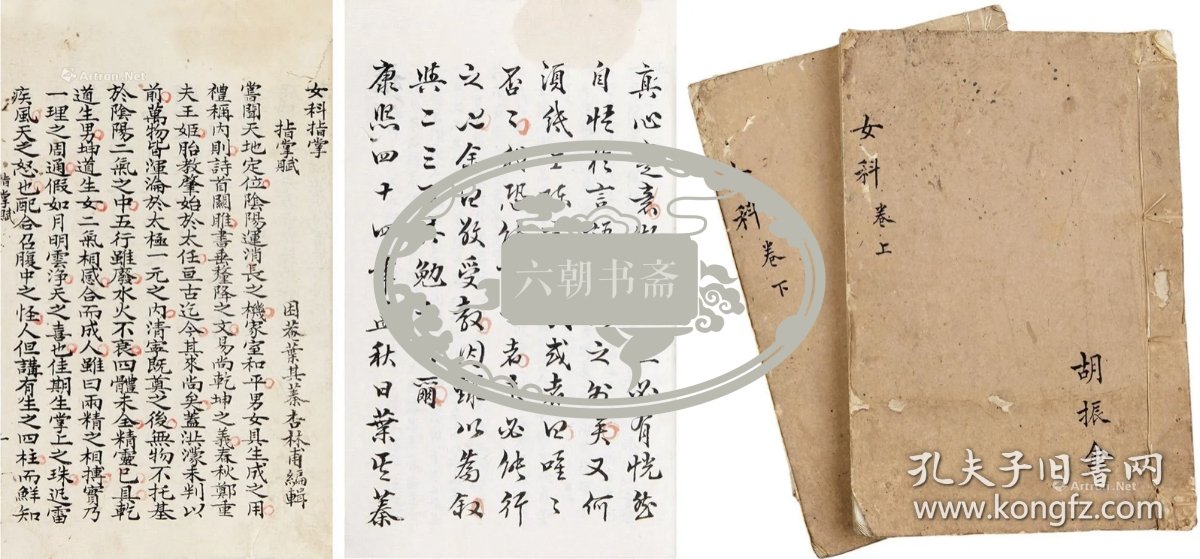 女科指掌
指掌賦
困菴葉其蓁杏林甫編輯
嘗聞天地定位陰陽運消長之機家室和平男女具生成之用
禮稱內則詩首關雎書垂釐降之文易尚乾坤之義春秋鄭重
夫王姬胎教肇始於太任亘古迄今其來尚矣蓋洪濛未判以
前萬物皆渾淪於太極一元之內清寧既奠之後無物不托基
於陰陽二氣之中五行雖廢水火不衰四體未全精靈已具乾
道生男坤道生女二氣相感合而成人雖曰兩精之相搏實乃
一理之周通假如月明雲淨天之喜也佳期生掌上之珠迅雷
疾風天之怒也配合召腹中之怪人但講有生之四柱而鮮知
指掌賦
真心之 必有恍然
自悟於言語 之外矣又何
須 或者曰唯唯
否否 者不必能行
之 余曰敬受教因錄以為敘
與二三 勉 爾
康熙四十四年 秋日葉其蓁
六朝书斋
科 卷下
女科 卷上
胡振
孔夫子旧书网
www.kongfz.com
Artron.Net
Artron.Net